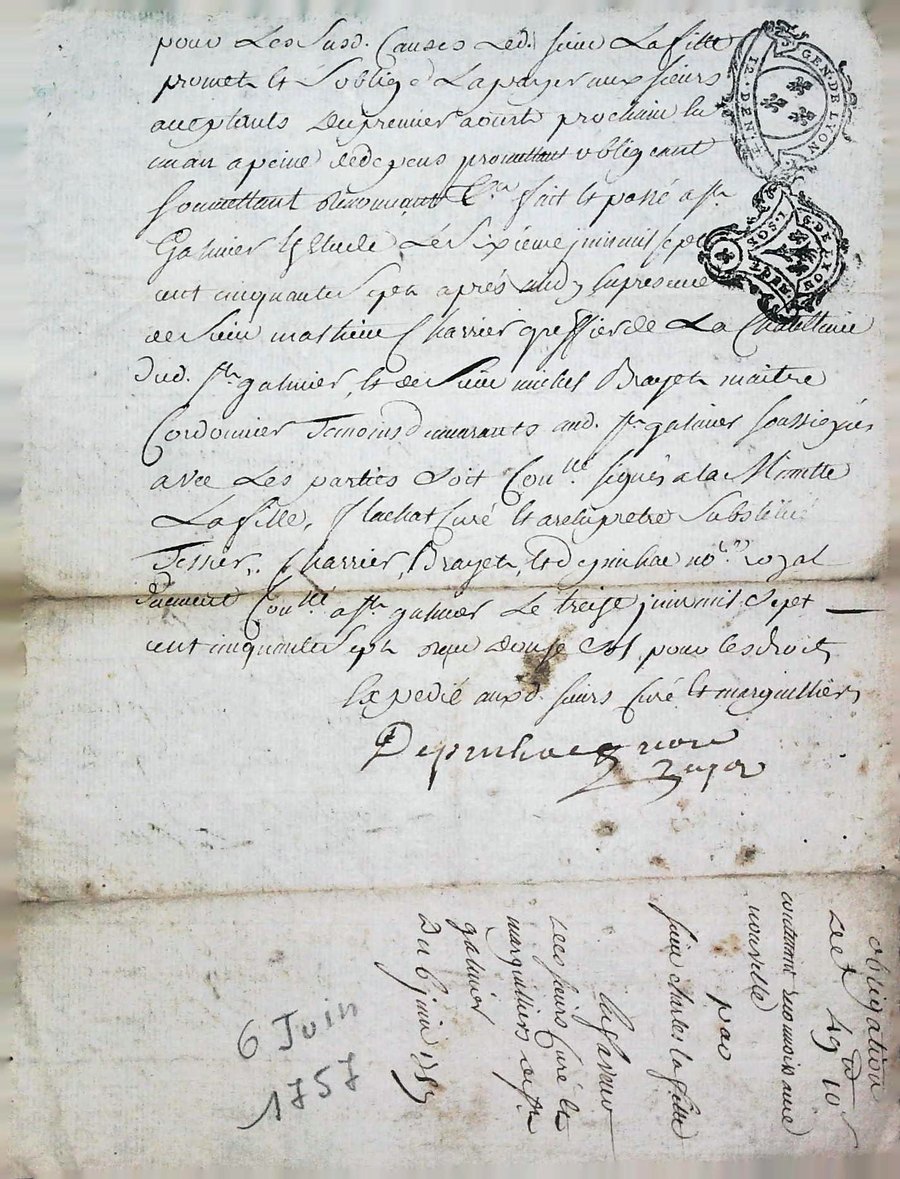 pour Les susd. Causes Led. sieur Lafille
promet et s'oblige La payer aux sieurs
acceptants Du premier aoust prochain En
un an a peine de depens promettant obligeant
soumettant Renonçant &ca fait et passé a st
Galmier Etude Le sixième juin mil sept
cent cinquante sept après midy En presence
de sieur mathieu Charrier greffier de La Chatellenie
dud. st galmier, et de sieur michel Brayet maitre
Cordonnier Temoins demeurants aud. st galmier soussignés
avec Les parties soit Conlle signés a la Minutte
Lafille, flachat Curé et archipretre substitué
Tessier, Charrier, Brayet, et Depinhac nore royal
Conlle a st galmier Le treise juin mil sept
cent cinquante sept reçu douse sols pour les droits
Expedié auxd. sieurs Curé et marguilliers
Depinhac nore
Royal
GEN. DE LYON
12. D. EN. F.
G. DE LYON
1. SOL
obligation
de 49lt 10s
contenant
nouvelle
par
sieur charles lafille
En faveur
Des sieurs Curé et
marguilliers de st
galmier
Du 6 juin 1757
6 Juin
1757